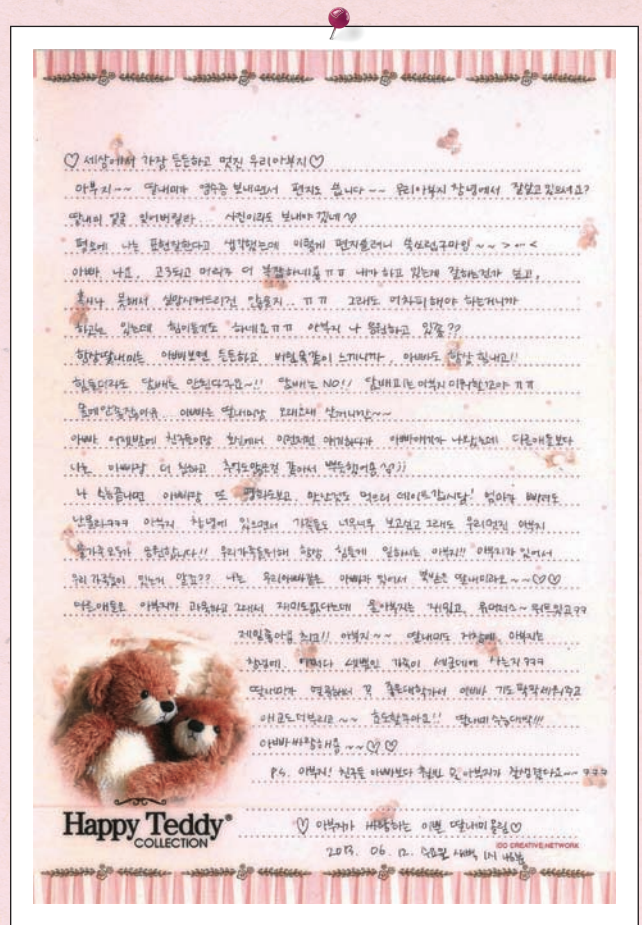 ♡ 세상에서 가장 든든하고 멋진 우리아부지 ♡
아부지~~ 딸내미가 영수증 보내면서 편지도 씁니다~~ 우리아부지 창녕에서 잘살고있으세요?
딸내미 얼굴 잊어버릴라... 사진이라도 보내야겠네
평소에 나는 표현잘한다고 생각했는데 이렇게 편지쓸려니 쑥쓰럽구마잉~~
아빠 나요, 고3되고 머리가 더 복잡하네요ㅠㅠ 내가 하고 있는게 잘하는건가 싶고,
혹시나 못해서 실망시켜드리진 않을지.. ㅠㅠ 그래도 어차피해야 하는거니까
하고는 있는데 힘이들기도 하네요ㅠㅠ 아부지 나 응원하고 있죠??
항상딸내미는 아빠보면 든든하고 버팀목같이 느껴니까, 아빠도 항상 힘내고!!
힘들더라도 담배는 안된다구요~!! 담배는 NO!! 담배피는 아부지 미워할꺼야 ㅠㅠ
몸에안좋잖아유.. 아빠는 딸내미랑 오래오래 살꺼니깐~~
아빠 어제밤에 친구들이랑 화실에서 이런저런 얘기하다가 아빠얘기가 나왔는데 다른애들보다
나는 아빠랑 더 친하고 추억도많은것 같아서 뿌듯했어용
나 수능끝나면 아빠랑 또 영화도보고, 맛난것도 먹으러 데이트갑시당! 엄마가 삐져도
난몰라ㅋㅋㅋ 아부지 창녕에 있으면서 가족들도 너무너무 보고싶고 그래도 우리멋진 아부지
울가족모두가 응원합니다!! 우리가족들위해 항상 힘들게 일하시는 아부지!! 아부지가 있어서
우리 가족들이 있는거 알죠?? 나는 우리아빠같은 아빠가 있어서 복받은 딸내미라오~~♡♡
다른애들은 아부지가 과묵하고 그래서 재미도없다는데 울아부지는 재밌고, 유머러스~ 위트있고ㅋㅋ
제일좋아용 최고!! 아부지~~ 딸내미도 거창에, 아부지는
창녕에, 어쩌다 생이별인 가족이 세군데에 사는지ㅋㅋㅋ
딸내미가 열공해서 꼭 좋은대학가서 아빠 기도 팍팍세워주고
애교도더부리고~~ 효도할꾸마요!! 딸내미 수능대박!!!
아빠 싸랑해용~~♡♡
P.S. 아부지! 친구들 아빠보다 훨씬 울 아부지가 잘생겼다요~~ㅋㅋㅋ
♡ 아부지가 사랑하는 이쁜 딸내미올림♡
2013. 06. 12. 수요일 새벽 1시
Happy Teddy®
COLLECTION
IDO CREATIVE NETWORK